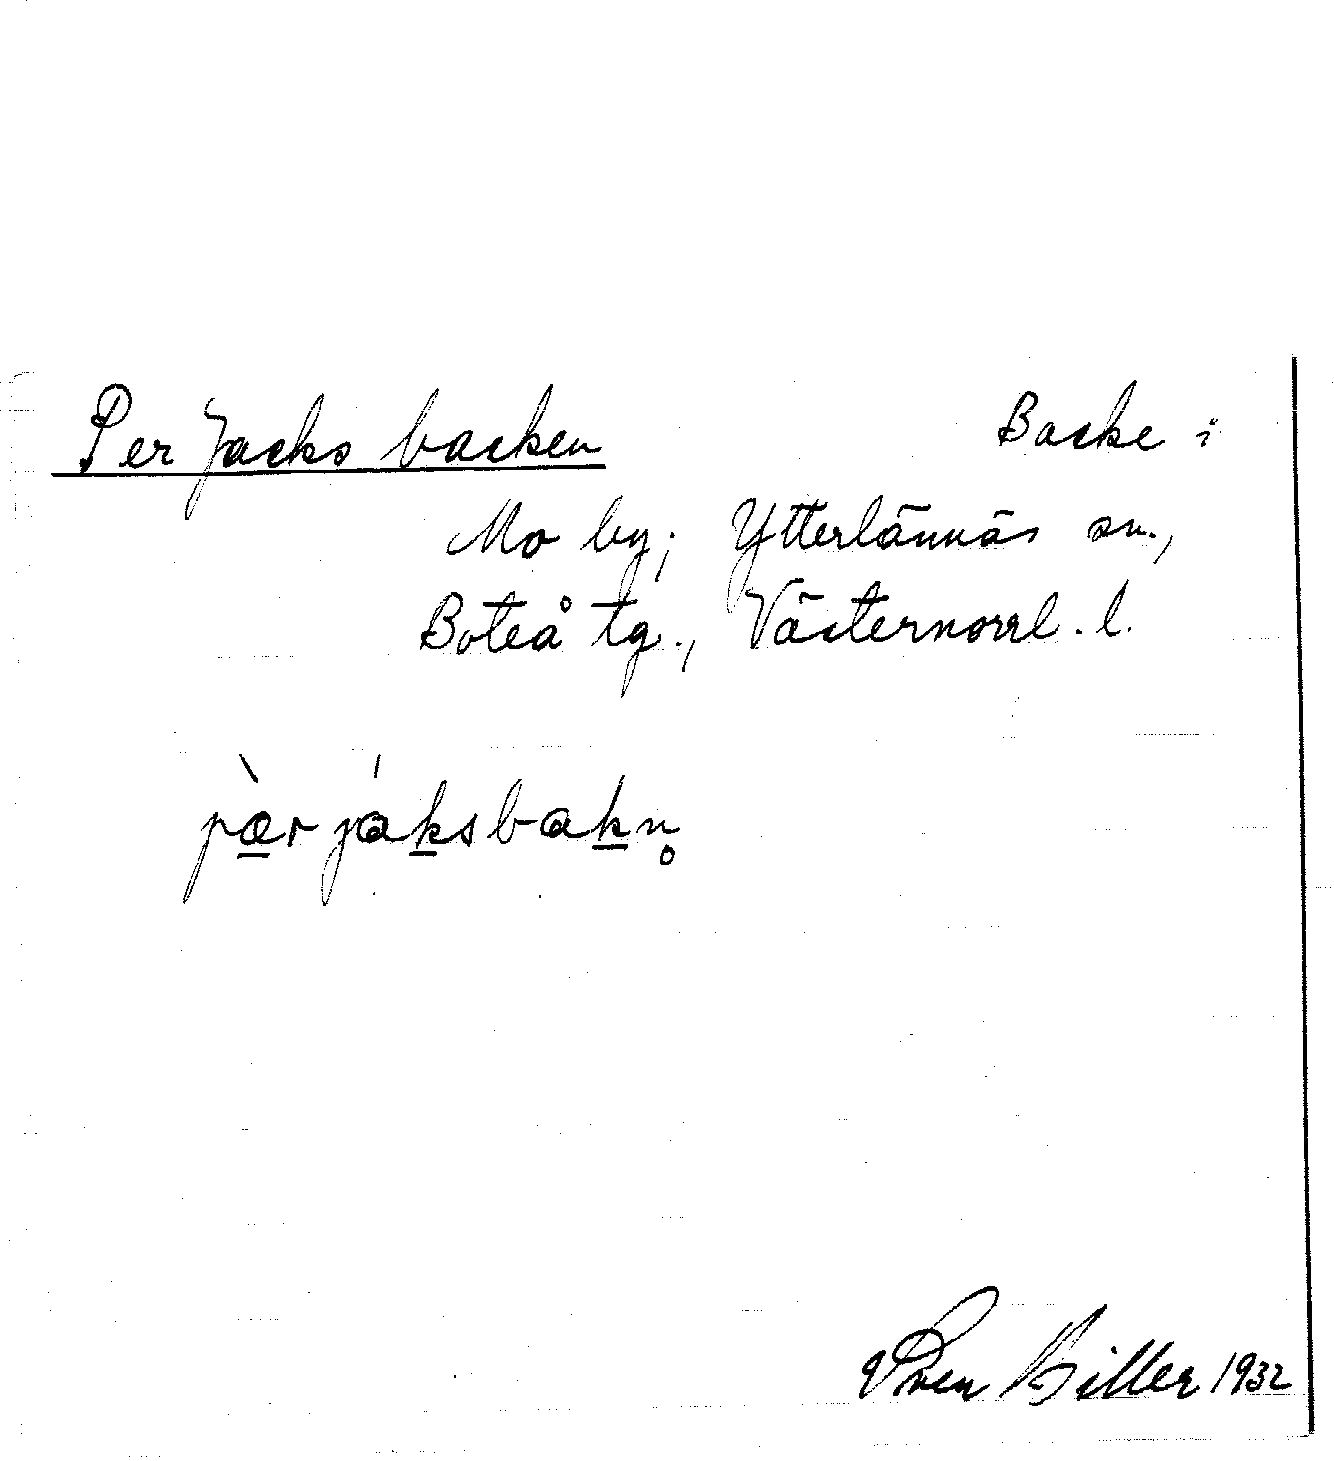 Per Jacks backen Backe i
Mo by; Ytterlännäs sn.,
Boteå tg., Västernorrl. l.
pæ̲̀r ják̲sbak̲n̥
Sven Hiller 1932